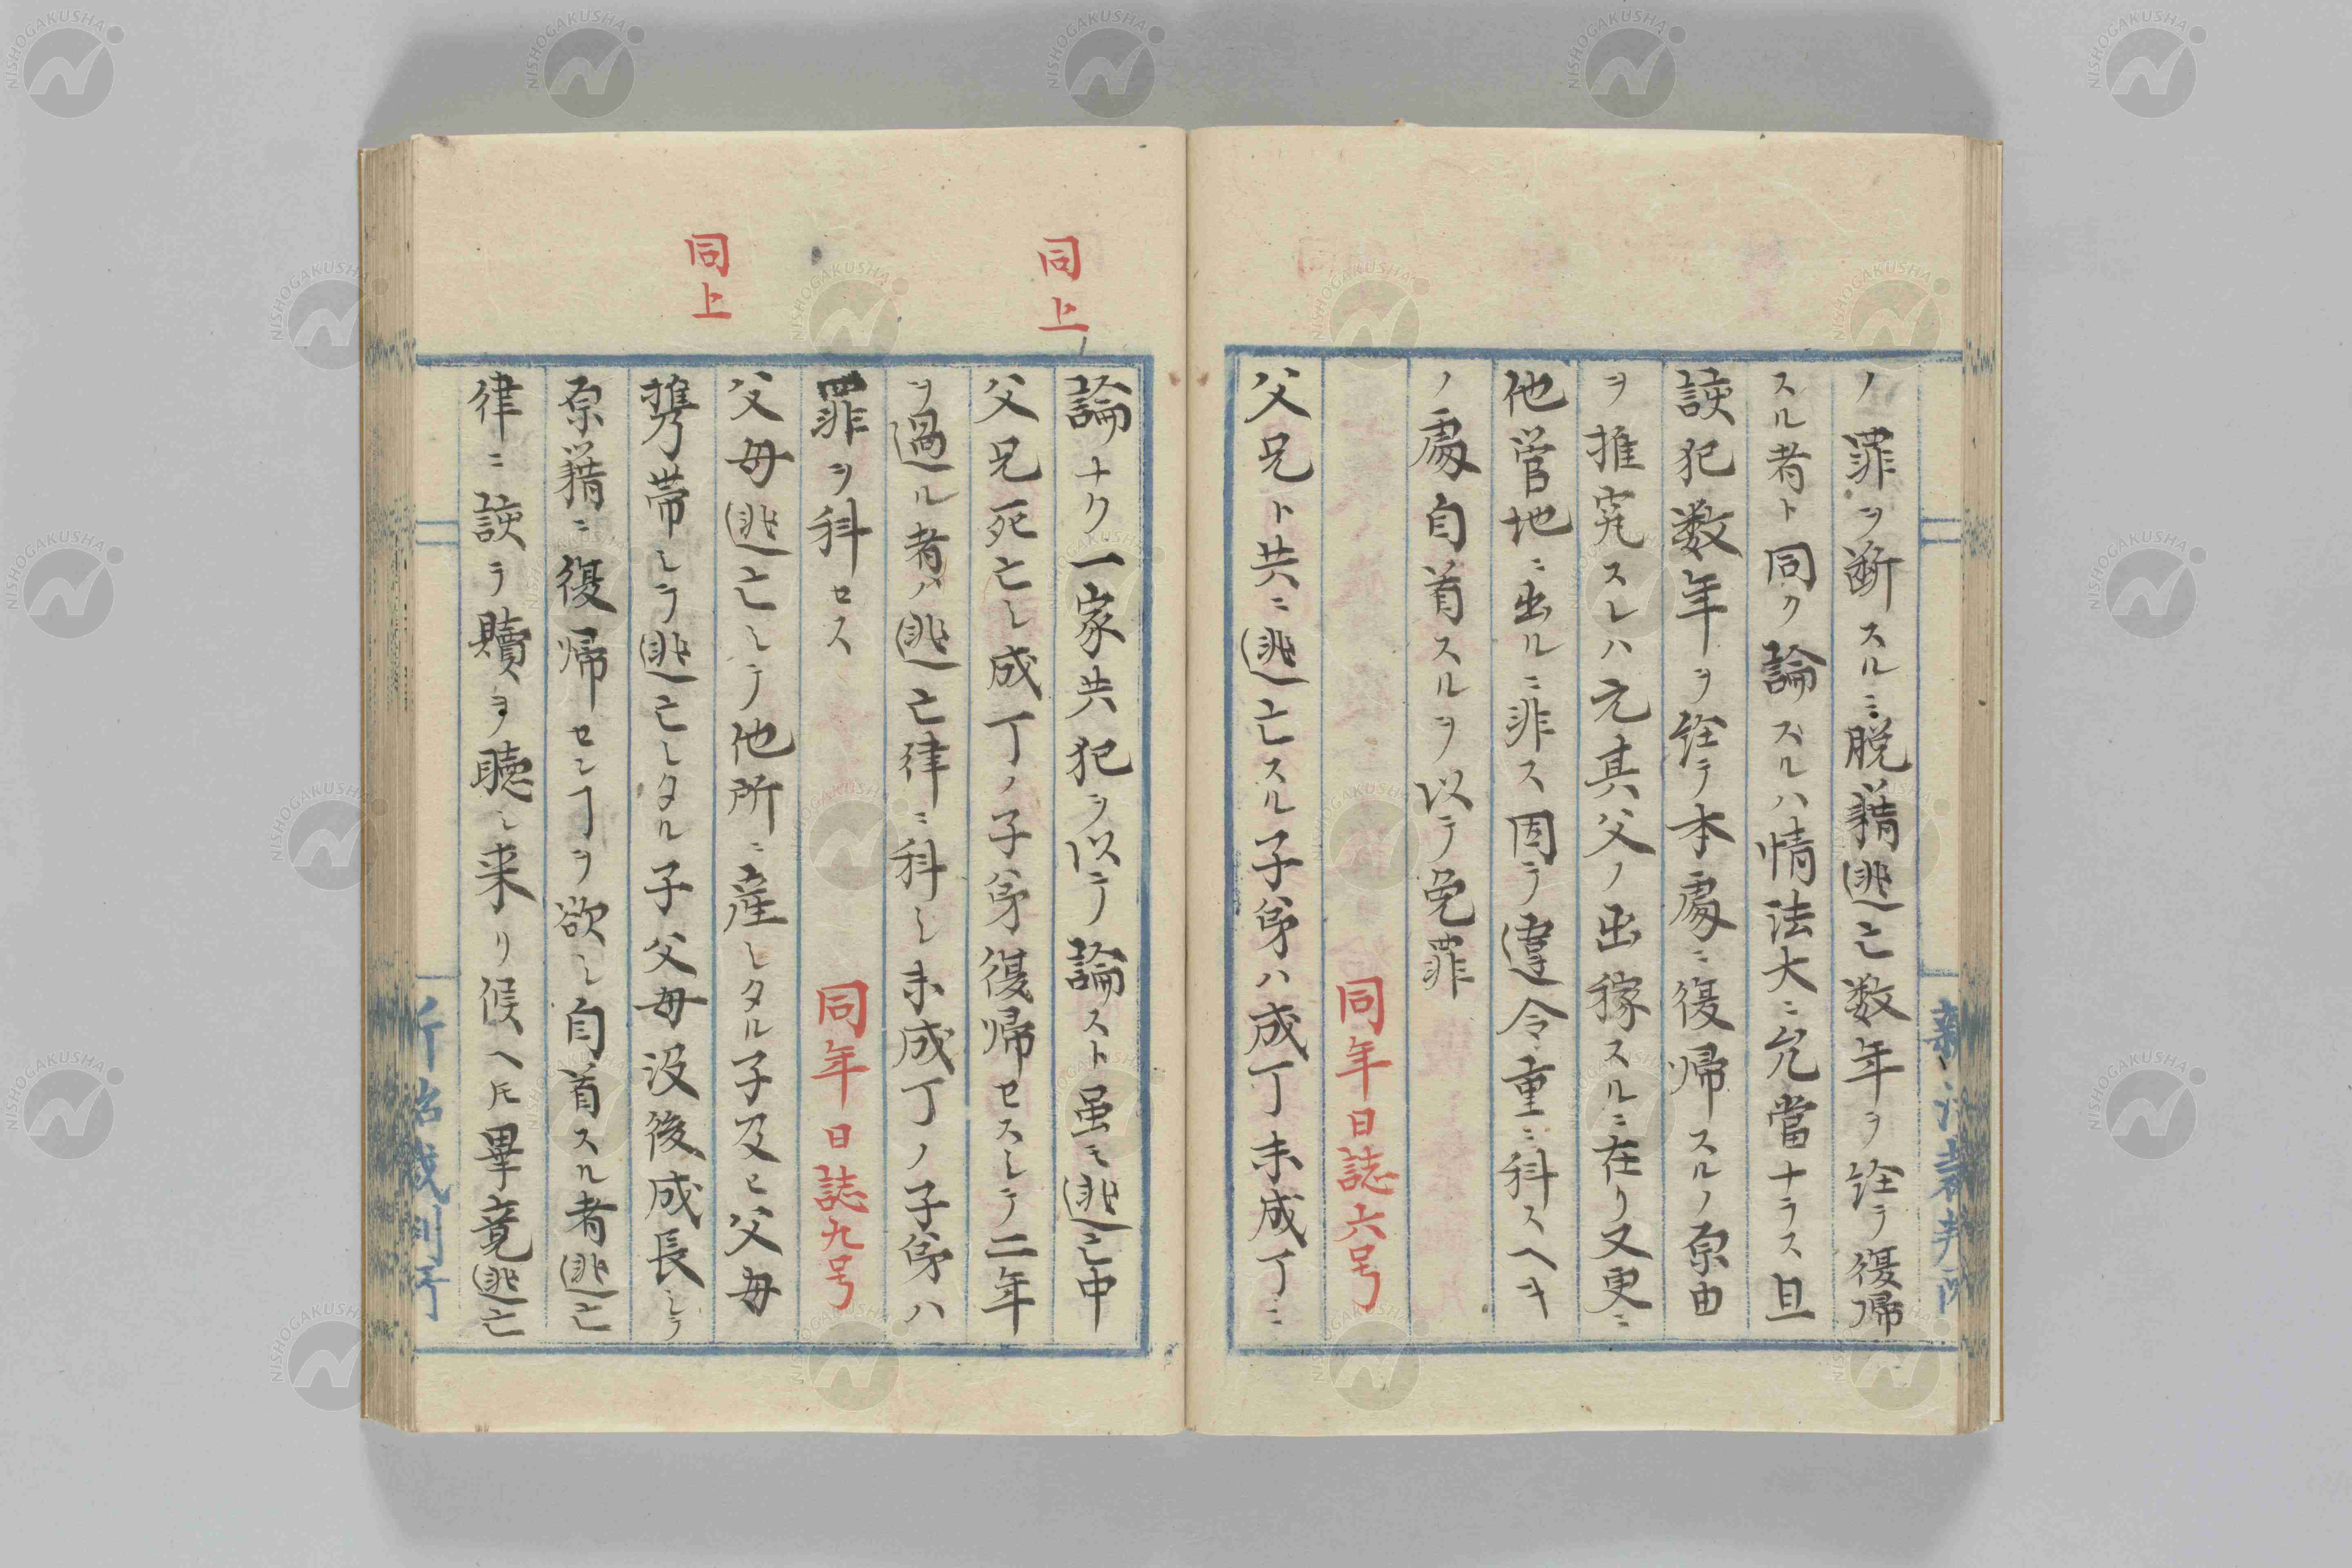 ノ罪ヲ断スルニ脱籍逃亡数年ヲ経テ復帰
スル者ト同ク論スルハ情法大ニ允當ナラス且
該犯数年ヲ経テ本處ニ復帰スルノ原由
ヲ推究スレハ元其父ノ出稼スルニ在リ又更ニ
他管地ニ出ルニ非ス因テ違令重ニ科スヘキ
ノ處自首スルヲ以テ免罪
同年日誌六号
父兄ト共ニ逃亡スル子弟ハ成丁未成丁ニ
同上
論ナク一家共犯ヲ以テ論スト虽モ逃亡中
父兄死亡シ成丁ノ子弟復帰セスシテ二年
ヲ過ル者ハ逃亡律ニ科シ未成丁ノ子弟ハ
罪ヲ科セス
同年日誌九号
同上
父母逃亡シテ他所ニ産シタル子及ヒ父母
携帯シテ逃亡シタル子父母没後成長シテ
原籍ニ復帰センヿヲ欲シ自首スル者逃亡
律ニ該テ贖ヲ聴シ来リ候ヘ𪜈畢竟逃亡
新治裁判所
新治裁判所
NISHOGAKUSHA